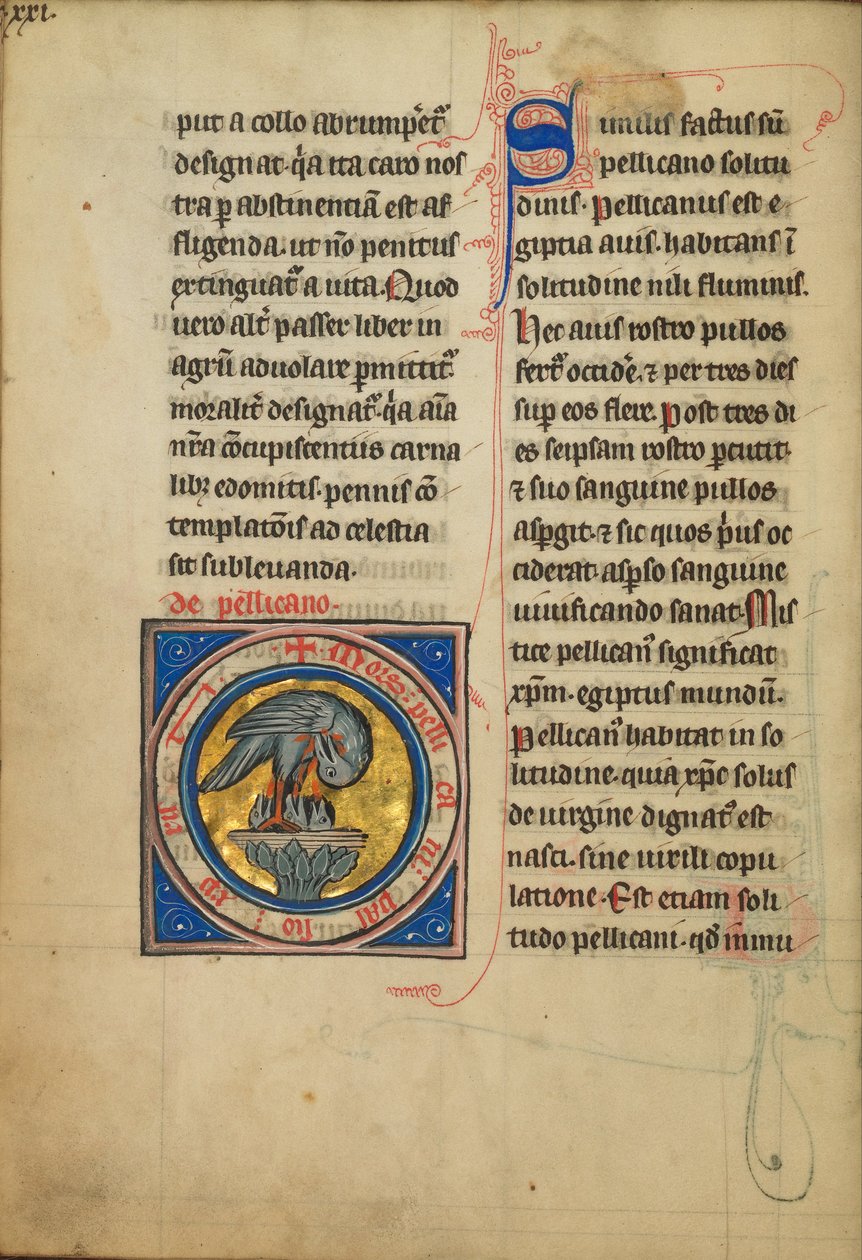 xxi.
put a collo abrump̄et᷑
designat. q̉a ita caro nos
tra ꝑ abstinentiā est af
fligenda. ut nō penitus
extinguat᷑ a uita. Quod
uero alt̄ passer liber in
agrū aduolare ꝑmittit᷑.
moralit̄ designat᷑. q̉a aīa
nr̄a cōcupiscentiis carna
libꝫ edomitis. pennis cō
templatōis ad celestia
sit subleuanda.
de pellicano.
✚ Mors: pelli ca ni: pas sio: xp̄
Similis factus sū
pellicano solitu
dinis. Pellicanus est e
giptia auis. habitans ī
solitudine nili fluminis.
Hec auis rostro pullos
fert᷑ occide᷑. ⁊ per tres dies
suꝑ eos flere. Post tres di
es seipsam rostro ꝑcutit.
⁊ suo sanguine pullos
asꝑgit. ⁊ sic quos p̉us oc
ciderat. asꝑso sanguine
uiuificando sanat. Mis
tice pellicanꝰ significat
xp̄m. egiptus mundū.
Pellicanꝰ habitat in so
litudine. quia xp̄c solus
de uirgine dignatꝰ est
nasci. sine uirili copu
latione. Est etiam soli
tudo pellicani. qd̓ immu